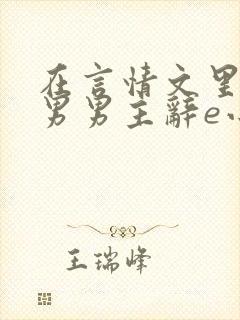 在言情文里
男男主辭e
王瑞峰